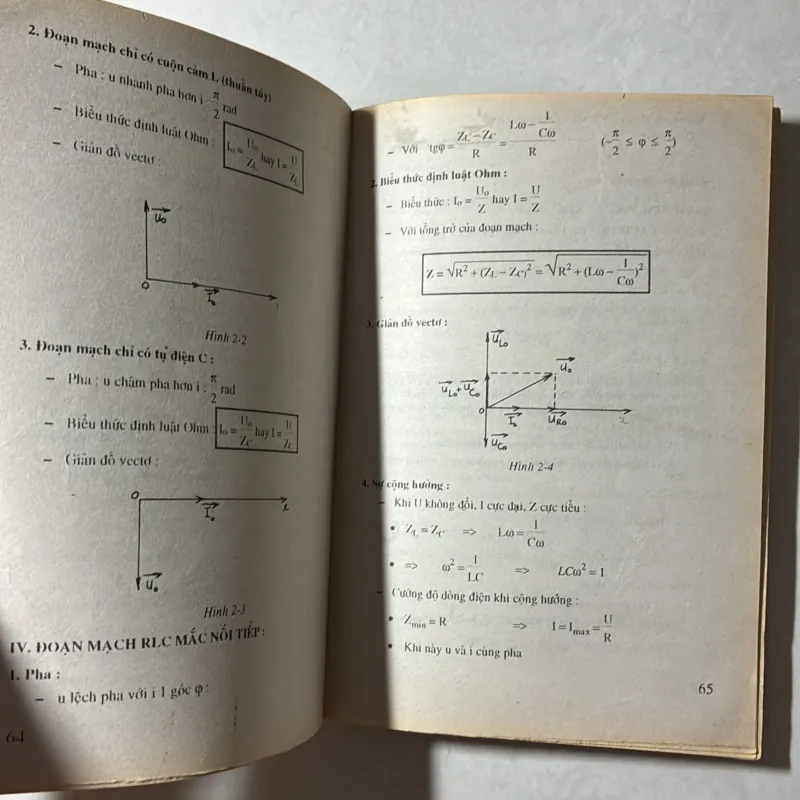 2. Đoạn mạch chỉ có cuộn cảm L (thuần túy)
– Pha : u nhanh pha hơn i : π/2 rad
– Biểu thức định luật Ohm : I₀ = U₀/Z_L hay I = U/Z_L
– Giản đồ vectơ :
U₀
O I₀
Hình 2-2
3. Đoạn mạch chỉ có tụ điện C :
– Pha : u chậm pha hơn i : π/2 rad
– Biểu thức định luật Ohm : I₀ = U₀/Z_C hay I = U/Z_C
– Giản đồ vectơ :
O I₀ x
U₀
Hình 2-3
IV. ĐOẠN MẠCH RLC MẮC NỐI TIẾP :
1. Pha :
– u lệch pha với i 1 góc φ :
64
– Với tgφ = (Z_L – Z_C)/R = (Lω – 1/Cω)/R (–π/2 ≤ φ ≤ π/2)
2. Biểu thức định luật Ohm :
– Biểu thức : I₀ = U₀/Z hay I = U/Z
– Với tổng trở của đoạn mạch :
Z = √(R² + (Z_L – Z_C)²) = √(R² + (Lω – 1/Cω)²)
3. Giản đồ vectơ :
U_L₀
U_L₀ + U_C₀ U₀
O I₀ U_R₀ x
U_C₀
Hình 2-4
4. Sự cộng hưởng :
– Khi U không đổi, I cực đại, Z cực tiểu :
• Z_L = Z_C => Lω = 1/Cω
• => ω² = 1/LC => LCω² = 1
– Cường độ dòng điện khi cộng hưởng :
• Z_min = R => I = I_max = U/R
• Khi này u và i cùng pha
65